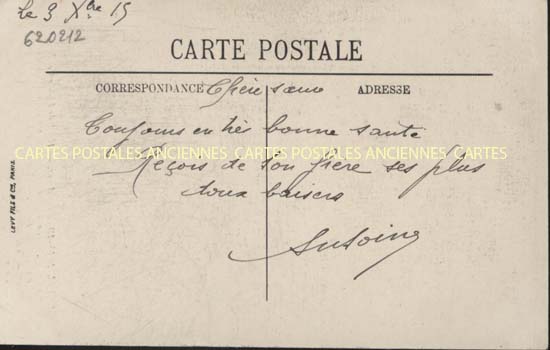 Le 3 Xbre 15
620212
CARTE POSTALE
CORRESPONDANCE Chère sœur ADRESSE
Toujours en très bonne santé
CARTES POSTALES ANCIENNES CARTES POSTALES ANCIENNES CARTES
Reçois de ton frère ses plus
doux baisers
Antoine
LEVY FILS & Cie, PARIS